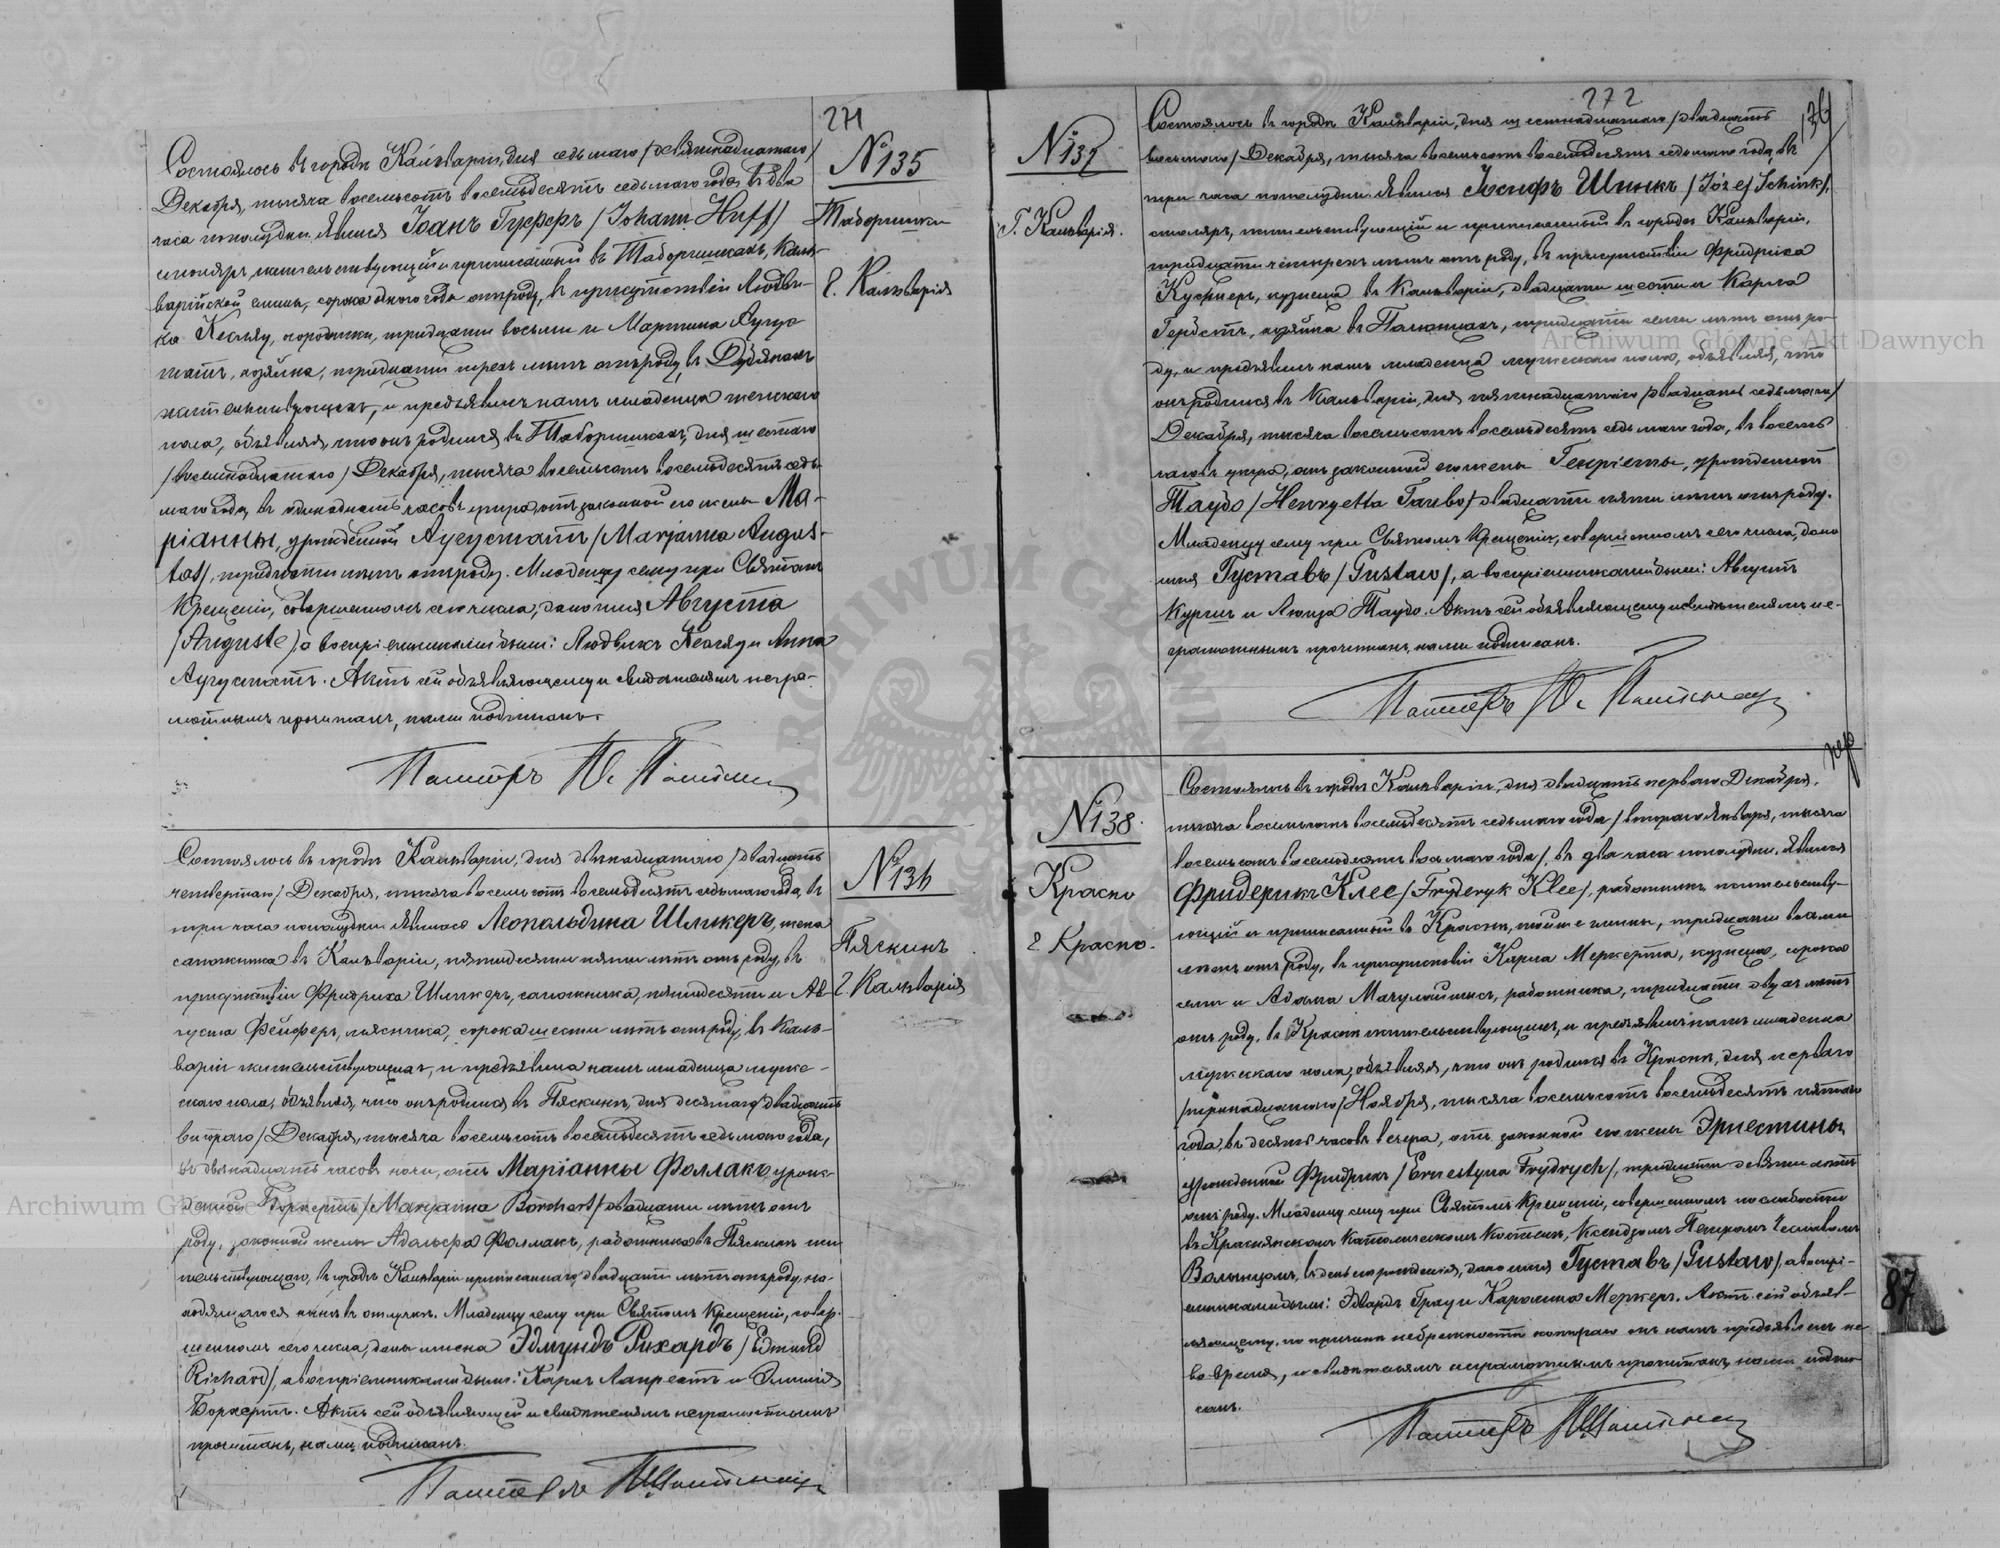 271
Состоялось въ городѣ Кальваріи, дня седьмаго /девятнадцатаго/
Декабря, тысяча восемьсотъ восемьдесятъ седьмаго года въ два
часа пополудни. Явился Іоанъ Гуффъ /Johann Huff/
житель­ствующій и приписанный въ Таборишкахъ, Каль-
варійской гмины, сорока одного года отъ роду, въ присутствіи Людви-
ка тридцати восьми и Мартина Аугус
татъ, хозяина, тридцати трехъ лѣтъ отъ роду, въ
жительствующихъ, и предъявилъ намъ младенца женскаго
пола, объявляя, что онъ родился въ Таборишкахъ, дня шестаго
/восемнадцатаго/ Декабря, тысяча восемьсотъ восемьдесятъ седь
маго года, въ одинадцать часовъ утра, отъ законной его жены Ма-
ріанны, урожденной Аугустатъ /Marjanna Augus-
tat/, тридцати лѣтъ отъ роду. Младенцу сему при Святомъ
Крещеніи, совершенномъ сего числа, дано имя Августа
/Auguste/, а воспріемниками были: Людвикъ и Анна
Аугустатъ. Актъ сей объявляющему и свидѣтелямъ негра-
мотнымъ прочитанъ, нами подписанъ.
Пасторъ
№135
Таборишки
г. Кальварія
Состоялось въ городѣ Кальваріи, дня двѣнадцатаго /двадцать
четвертаго/ Декабря, тысяча восемьсотъ восемьдесятъ седьмаго года, въ
три часа пополудни. Явилась Леопольдина Шликеръ, жена
сапожника въ Кальваріи, пятидесяти пяти лѣтъ отъ роду, въ
присутствіи Фридриха Шликеръ, сапожника, пятидесяти и Ав-
густа Фейферъ, мясника, сорока шести лѣтъ отъ роду, въ Каль-
варіи жительствующихъ, и предъявила намъ младенца муже-
скаго пола, объявляя, что онъ родился въ Пяскинъ, дня десятаго /двадцать
втораго/ Декабря, тысяча восемьсотъ восемьдесятъ седьмаго года,
въ двѣнадцать часовъ ночи, отъ Маріанны Фоллакъ, урож-
денной Борхертъ /Marjanna Borchert/ двадцати лѣтъ отъ
роду, законной жены Адольфа Фоллакъ, работника въ Пяскинъ жи
тельствующаго, въ городѣ Кальваріи приписаннаго двадцати лѣтъ отъ роду, на-
ходящагося нынѣ въ отлучкѣ. Младенцу сему при Святомъ Крещеніи, совер-
шенномъ сего числа, даны имена Эдмундъ Рихардъ /Edmund
Richard/, а воспріемниками были: Карлъ и Эмилія
Борхертъ. Актъ сей объявляющей и свидѣтелямъ неграмотнымъ
прочитанъ, нами подписанъ.
Пасторъ
№136
Пяскинъ
г. Кальварія
272
№137
Г. Кальварія.
Состоялось въ городѣ Кальваріи, дня шестнадцатаго /двадцать
восьмаго/ Декабря, тысяча восемьсотъ восемьдесятъ седьмаго года, въ
три часа пополудни. Явился Іосифъ Шинкъ /Józef Schink/,
столяръ, жительствующій и приписанный въ городѣ Кальваріи,
тридцати четырехъ лѣтъ отъ роду, въ присутствіи Фридриха
Кушнеръ, кузнеца въ Кальваріи, двадцати шести и Карла
хозяина въ тридцати семи лѣтъ отъ ро-
ду, и предъявилъ намъ младенца мужескаго пола, объявляя, что
онъ родился въ Кальваріи, дня пятнадцатаго /двадцать седьмаго/
Декабря, тысяча восемьсотъ восемьдесятъ седьмаго года, въ восемь
часовъ утра, отъ законной его жены Генріеты, урожденной
Таубо /Henryetta Taubo/ двадцати пяти лѣтъ отъ роду.
Младенцу сему при Святомъ Крещеніи, совершенномъ сего числа, дано
имя Густавъ /Gustaw/, а воспріемниками были: Августъ
и Луиза Таубо. Актъ сей объявляющему и свидѣтелямъ не-
грамотнымъ прочитанъ, нами подписанъ.
Пасторъ
№138.
Красно
г. Красно.
Состоялось въ городѣ Кальваріи, дня двадцать перваго Декабря,
тысяча восемьсотъ восемьдесятъ седьмаго года /втораго Января, тысяча
восемьсотъ восемьдесятъ восьмаго года/, въ два часа пополудни. Явился
Фридерикъ Клее /Fryderyk Klee/, работникъ, жительству-
ющій и приписанный въ Красни, той же гмины, тридцати восьми
лѣтъ отъ роду, въ присутствіи Карла Меркерта, кузнеца, сорока
семи и Адама работника, тридцати двухъ лѣтъ
отъ роду, въ Красни жительствующихъ, и предъявилъ намъ младенца
мужескаго пола, объявляя, что онъ родился въ Красни, дня перваго
/тринадцатаго/ Ноября, тысяча восемьсотъ восемьдесятъ пятаго
года, въ десять часовъ вечера, отъ законной его жены Эрнестины
урожденной Фридрихъ /Ernestyna Frydrych/, тридцати девяти лѣтъ
отъ роду. Младенцу сему при Святомъ Крещеніи, совершенномъ по слабости
въ Краснянскомъ Католическомъ Костелѣ, Ксендзомъ
въ день его рожденія, дано имя Густавъ /Gustaw/, а воспрі-
емниками были: Эдвардъ Грау и Каролина Меркеръ. Актъ сей объяв-
ляющему, по причинѣ небрежности котораго онъ намъ предъявленъ не
во время, и свидѣтелямъ неграмотнымъ прочитанъ, нами подпи-
санъ.
Пасторъ
87
Archiwum Główne Akt Dawnych
Archiwum Główne Akt Dawnych